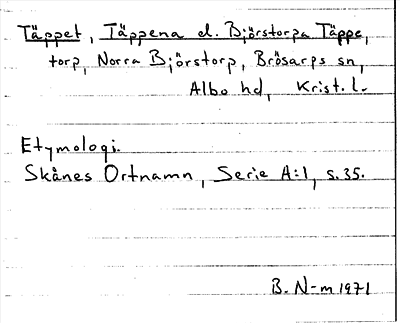 Täppet, Täppena el. Björstorpa Täppe,
torp, Norra Bjørstorp, Brösarps sn,
Albo hd, Krist. l.
Etymologi.
Skånes Ortnamn, Serie A:1, s. 35.
B. N-m 1971